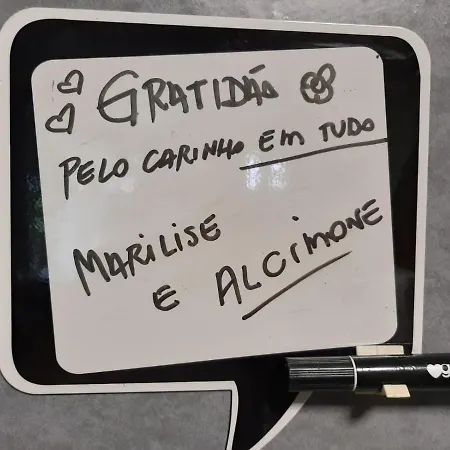 GRATIDÃO
PELO CARINHO EM TUDO
MARILISE
E ALCIMONE